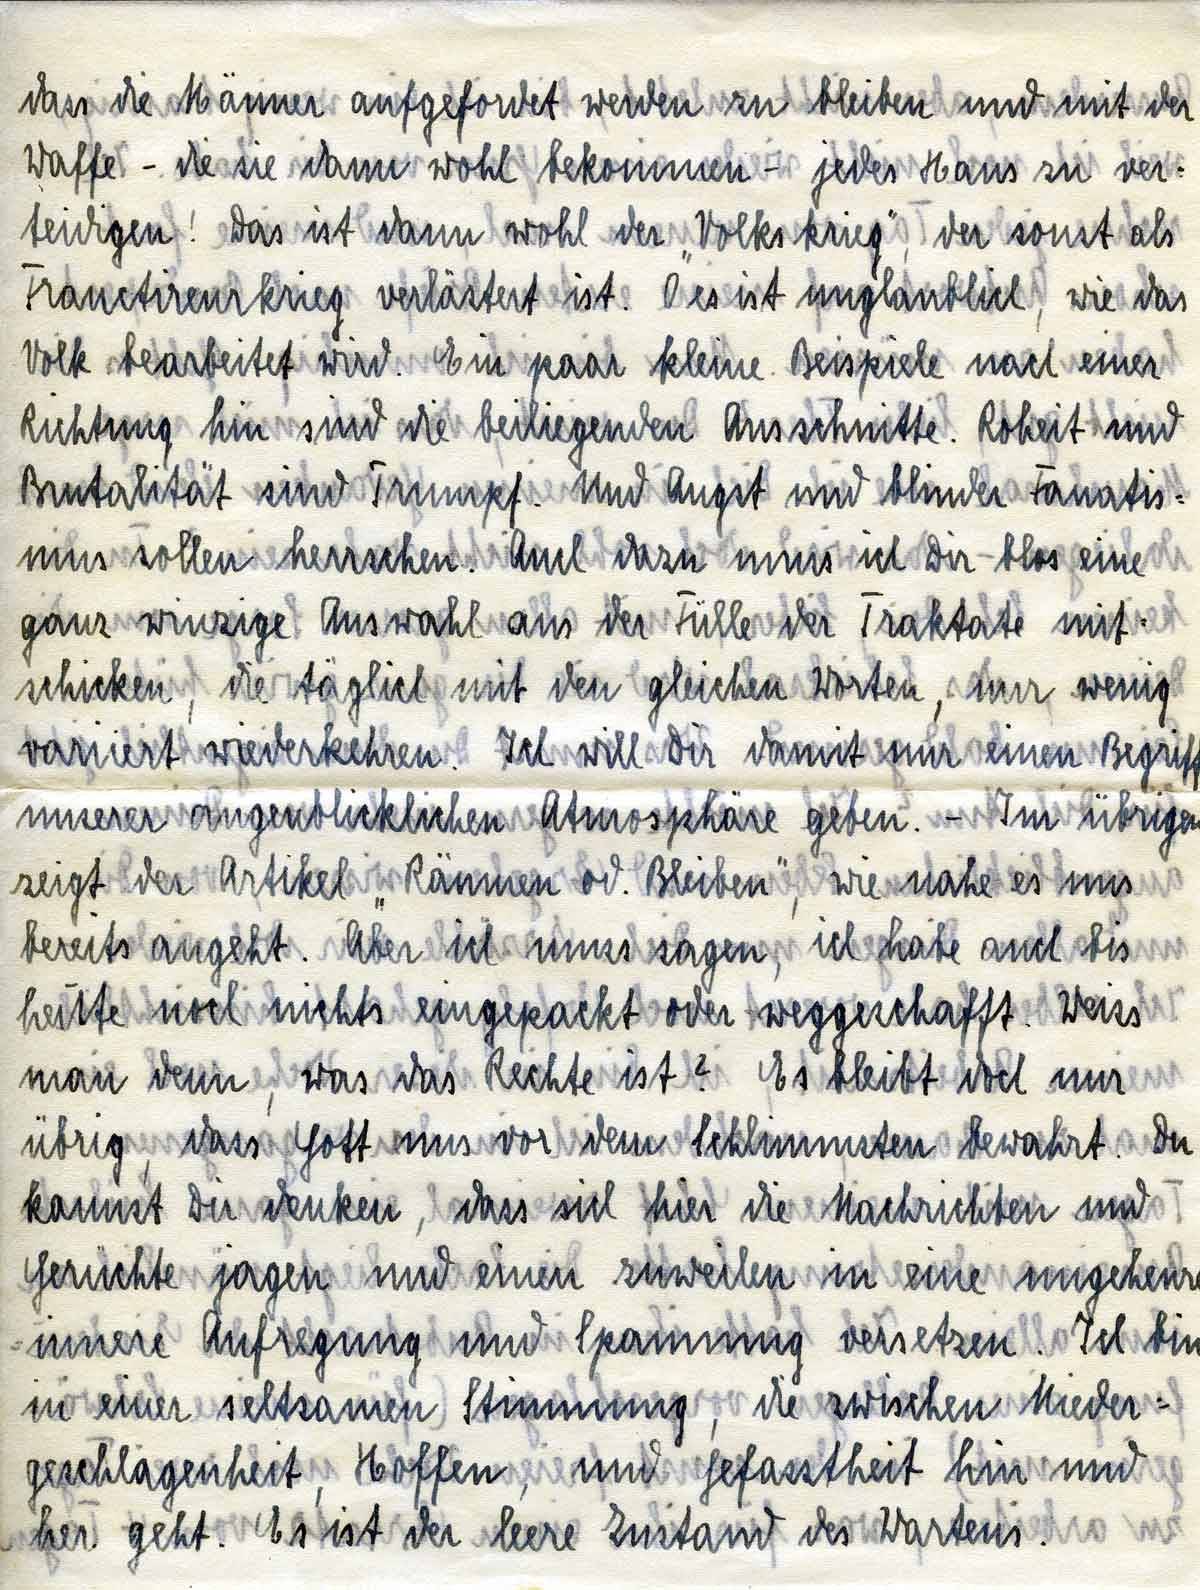 dass die Männer aufgefordet werden zu bleiben und mit der
Waffe - die sie dann wohl bekommen - jedes Haus zu ver-
teidigen! Das ist dann wohl der „Volkskrieg", der sonst als
Franctireurkrieg verlästert ist. O es ist unglaublich, wie das
Volk bearbeitet wird. Ein paar kleine Beispiele nach einer
Richtung hin sind die beiliegenden Ausschnitte. Roheit und
Brutalität sind Trumpf. Und Angst und blinder Fanatis-
mus sollen herrschen. Auch dazu muss ich Dir blos eine
ganz winzige Auswahl aus der Fülle der Traktate mit-
schicken, die täglich mit den gleichen Worten, nur wenig
variiert wiederkehren. Ich will Dir damit nur einen Begriff
unserer augenblicklichen Atmosphäre geben. - Im übrigen
zeigt der Artikel „Räumen od. Bleiben", wie nahe es uns
bereits angeht. Aber ich muss sagen, ich habe auch bis
heute noch nichts eingepackt oder weggeschafft. Weiss
man denn, was das Rechte ist? Es bleibt doch nur
übrig, dass Gott uns vor dem Schlimmsten bewahrt. Du
kannst Dir denken, dass sich hier die Nachrichten und
Gerüchte jagen und einen zuweilen in eine ungeheure
innere Aufregung und Spannung versetzen. Ich bin
in einer seltsamen Stimmung, die zwischen Nieder-
geschlagenheit, Hoffen, und Gefasstheit hin und
her geht. Es ist der leere Zustand des Wartens.